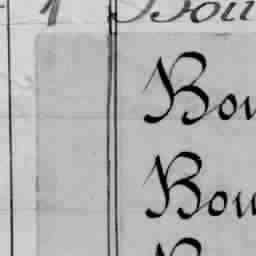 1 Bou
Bou
Bou